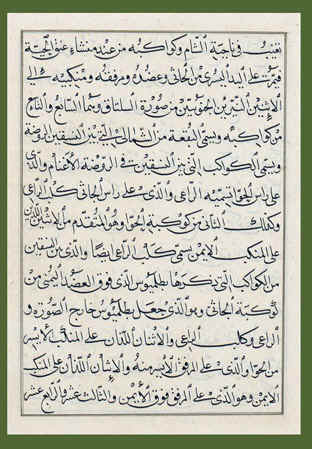 تغيب في ناحية الشام وكواكبه من عند منشاء عنق الحية
فتمر على اليد اليسرى من الجاثي وعضده ومرفقه ومنكبيه الى
الاثنين النيرين الجنوبيين من صورة وهما التاسع والثامن
من كواكبه ويسمى البقعة من الشمالي التي بين النسقين الروضة
ويسمى الكواكب التي بين النسقين في الروضة الاغنام والذي
على راس الحوا تسميه الراعي والذي على راس الجاثي كلب الراعي
وكذلك الثاني من كوكبة الحوا وهو المتقدم من الاثنين اللذين
على المنكب الايمن يسمى كلب الراعي ايضا والذي من النسقين
من الكواكب التي ذكرها بطلميوس الذي فوق العضد اليمنى من
كوكبة الجاثي وهو الذي جعله بطلميوس خارج الصورة و
الراعي وكلب الراعي والاثنان اللذان على المنكب الايسر
من الحوا والذي على المرفق الايسر منه والاثنان اللذان على المنكب
الايمن وهو الذي على المرفق فوق الايمن والثالث عشر والرابع عشر